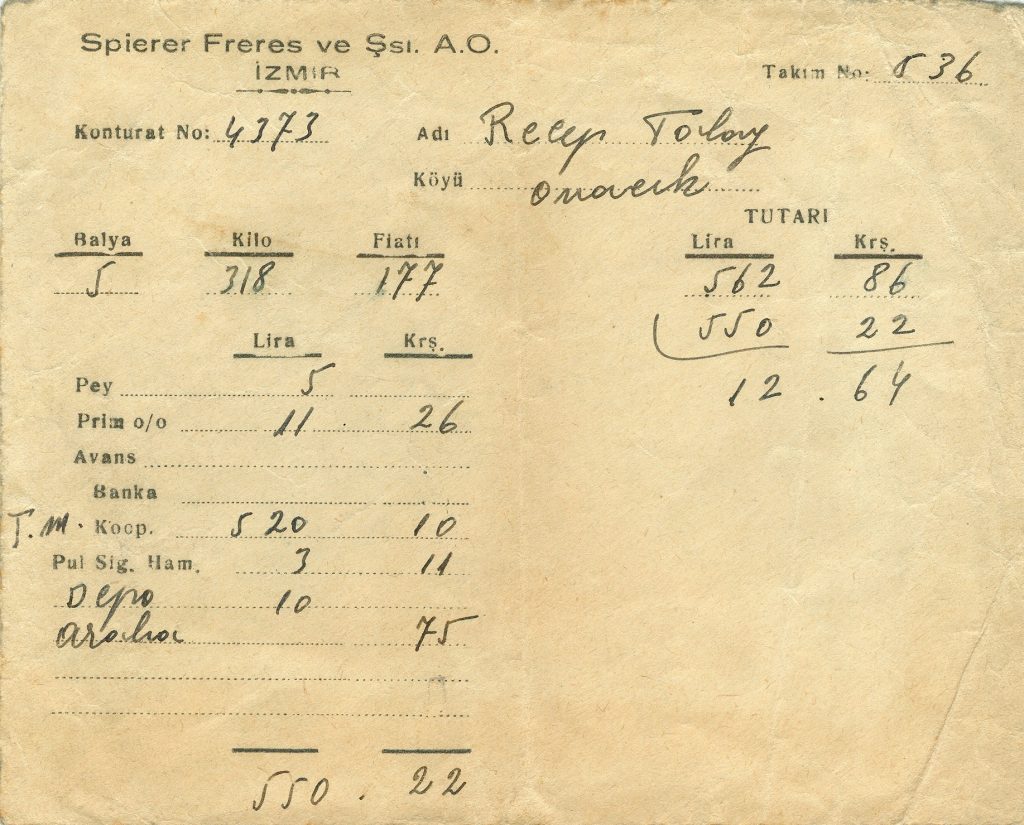 Spierer Freres ve Şsı. A.O.
İZMİR
Takım No: 536
Konturat No: 4373
Adı Recep Tolay
Köyü Ovacık
TUTARI
Balya Kilo Fiatı Lira Krş.
5 318 177 562 86
550 22
12 . 64
Lira Krş.
Pey 5
Prim o/o 11 . 26
Avans
Banka
T.M. Koop. 520 10
Pul Sig. Ham. 3 11
Depo 10
araba 75
550 . 22